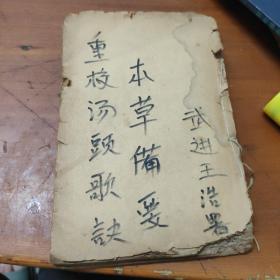 武进王浩署
本草備要
重校汤頭歌訣